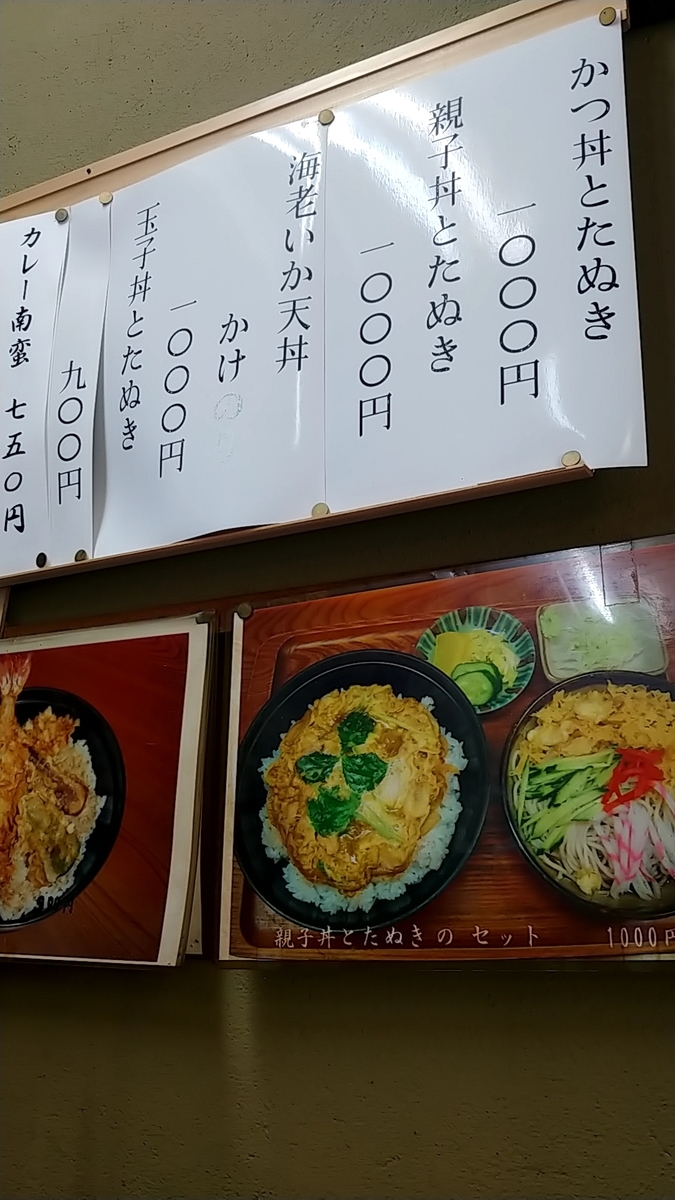 かつ丼とたぬき
一〇〇〇円
親子丼とたぬき
一〇〇〇円
海老いか天丼
かけ
一〇〇〇円
玉子丼とたぬき
九〇〇円
カレー南蛮 七五〇円
親子丼とたぬきの セット 1000円